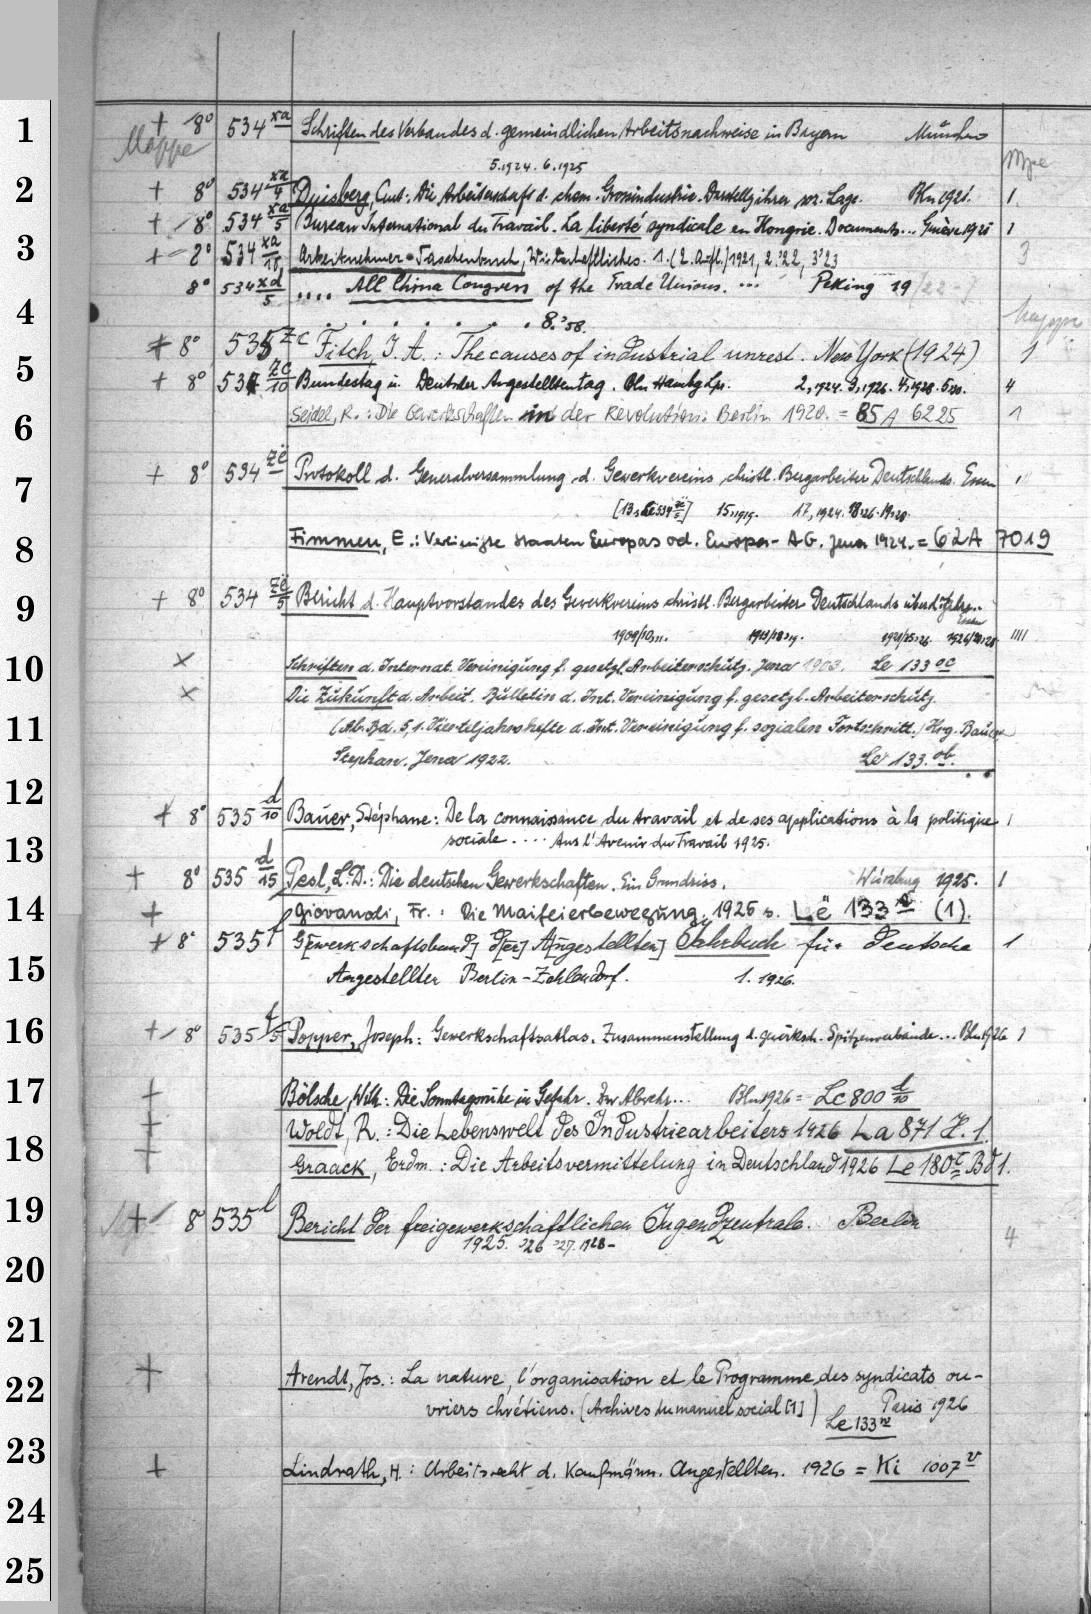 1 + 8° 534 xa Schriften des Verbandes d. gemeindlichen Arbeitsnachweise in Bayern München
Mappe Mpe
5.1924. 6.1925
2 + 8° 534 xa/4 Duisberg, Curt: Die Arbeiterschaft d. chem. Grossindustrie. Darstellg ihrer soz. Lage. Bln 1921. 1
+ 8° 534 xa/5 Bureau International du Travail. La liberté syndicale en Hongrie. Documents... Genève 1921 1
3 + 8° 534 xa/18 Arbeitnehmer-Taschenbuch, Wirtschaftliches. 1. (2. Aufl.) 1921, 2.'22, 3'23 3
8° 534 xd/5 .... All China Congress of the Trade Unions. ... Peking 19
4 . . . . . . . 8.'58.
+ 8° 535 zc Fitch, J. A.: The causes of industrial unrest. New York (1924) 1
5 + 8° 534 zc/10 Bundestag u. Deutscher Angestelltentag. Bln Hambg Lpz. 2,1924. 3,1926. 4,1928. 4
6 Seidel, R.: Die Gewerkschaften in der Revolution. Berlin 1920. = 85 A 6225 1
7 + 8° 534 zë Protokoll d. Generalversammlung d. Gewerkvereins christl. Bergarbeiter Deutschlands. Essen 1
[13 s. 534 zë/5] 15,1919. 17,1924. 18.26. 19.28.
8 Fimmen, E.: Vereinigte Staaten Europas od. Europa-AG. Jena 1924. = 62 A 7019
9 + 8° 534 zë/5 Bericht d. Hauptvorstandes des Gewerkvereins christl. Bergarbeiter Deutschlands über d. Jahre..
Essen
1909/10,11. 1913/18,19. IIII
10 × Schriften d. Internat. Vereinigung f. gesetzl. Arbeiterschutz. Jena 1903. Le 133 oc
× Die Zukunft d. Arbeit. Bulletin d. Int. Vereinigung f. gesetzl. Arbeiterschutz.
11 (Ab. Bd. 5, 1. Vierteljahrshefte d. Int. Vereinigung f. sozialen Fortschritt.) Hrg. Bauer
Stephan. Jena 1922. Le 133. ob.
12 + 8° 535 d/10 Bauer, Stéphane: De la connaissance du travail et de ses applications à la politique 1
13 sociale .... Aus l'Avenir du Travail 1925.
+ 8° 535 d/15 Pesl, L.D.: Die deutschen Gewerkschaften. Ein Grundriss. Würzburg 1925. 1
14 + Giovanoli, Fr.: Die Maifeierbewegung. 1925 s. Lë 133 (1).
+ 8° 535 f G[ewerkschaftsbund] d[er] A[ngestellten] Jahrbuch für Deutsche 1
15 Angestellter Berlin-Zehlendorf. 1. 1926.
16 + 8° 535 f/5 Popper, Joseph: Gewerkschaftsatlas. Zusammenstellung d. gewerksch. Spitzenverbände... Bln 1926 1
17 + Bölsche, Wilh.: Die Sonntagsruhe in Gefahr. Zur Abwehr... Bln 1926 = Lc 800 l/10
+ Woldt, R.: Die Lebenswelt des Industriearbeiters 1926 La 871 H. 1.
18 + Graack, Erdm.: Die Arbeitsvermittelung in Deutschland 1926 Le 180 Bd 1.
19 + 8° 535 l Bericht der freigewerkschaftlichen Jugendzentrale. Berlin
1925. '26 '27. 1928- 4
20
21
22 + Arendt, Jos.: La nature, l'organisation et le Programme des syndicats ou-
vriers chrétiens. (Archives du manuel social [1]) Paris 1926
Le 133
23 + Lindrath, H.: Arbeitsrecht d. Kaufmänn. Angestellten. 1926 = Ki 1007 v
24
25